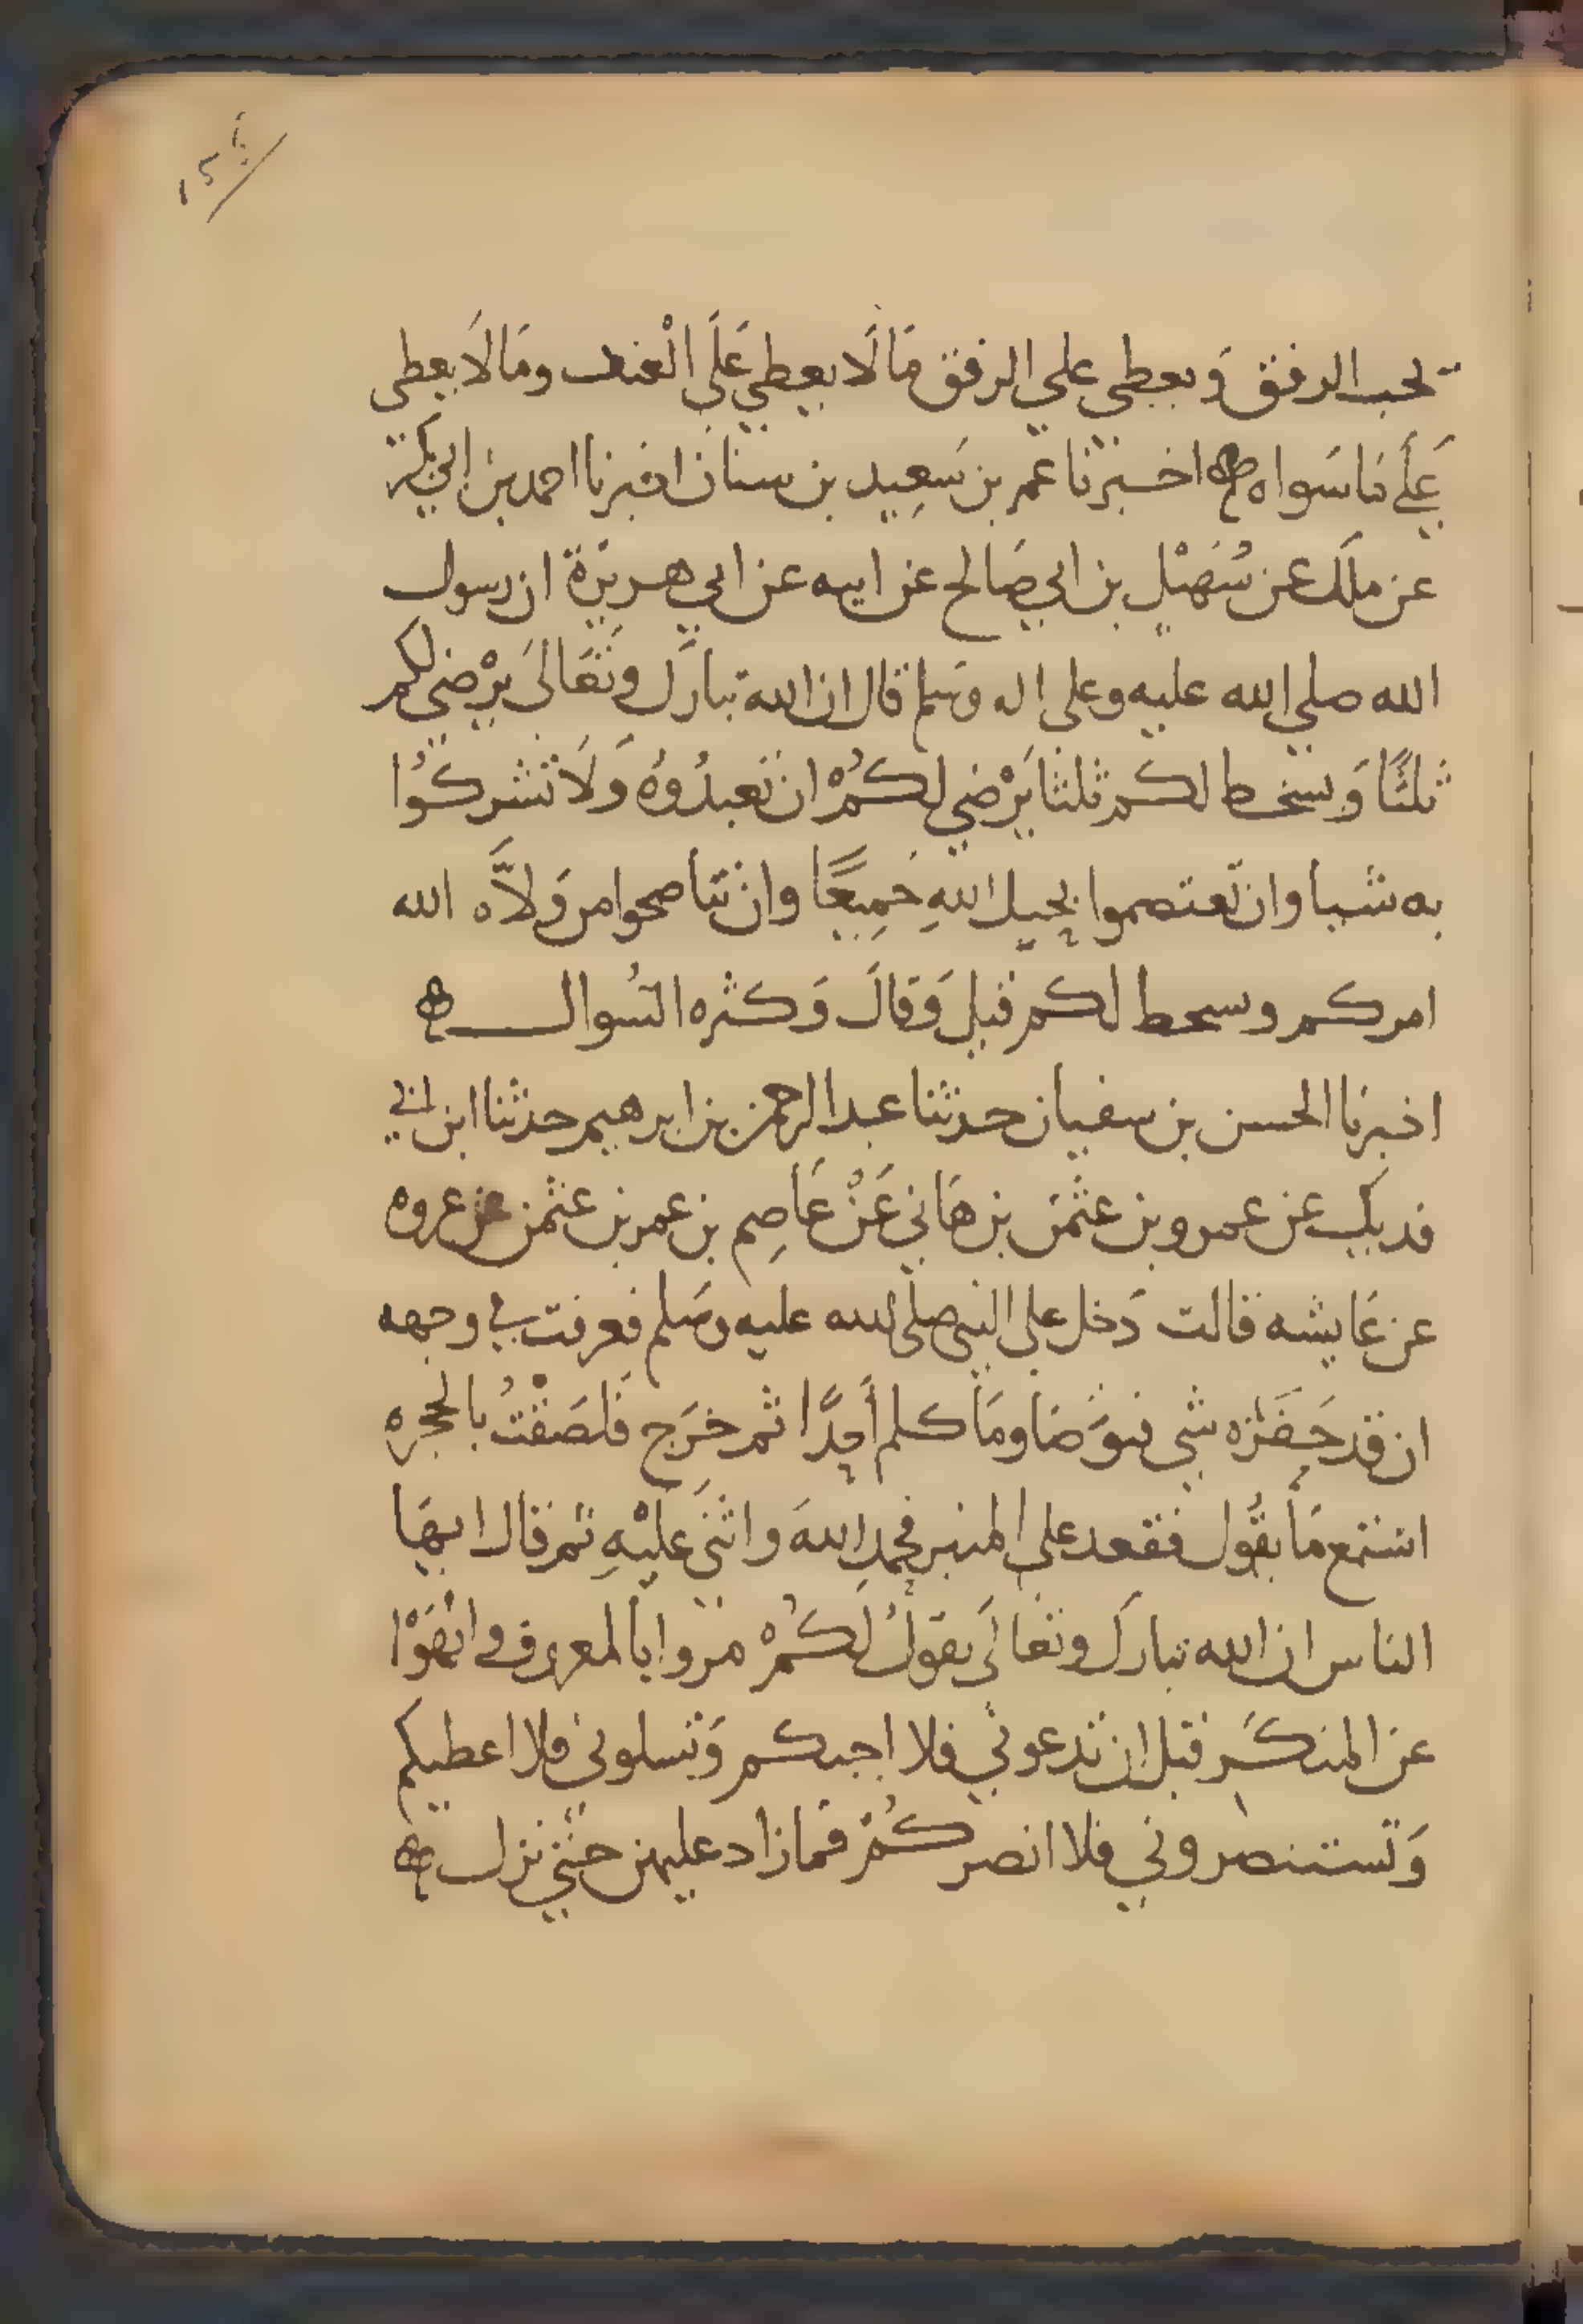 يحب الرفق وَيعطي علي الرفق مَا لَا يعطي عَلَي الْعنف ومَا لَا يعطي
عَلَي مَا سَواه اخبرنا عمر بن سَعِيد بن سنان اخبرنا احمد بن ابي بكر
عن ملك عن سُهَيْل بن ابي صَالح عن ابيه عن ابي هريرَة ان رسول
الله صلي الله عليه وعلى اله وسَلم قال ان الله تبارَك وتَعَالىَ يرْضي لكم
ثلثًا وَيسخط لكم ثلثا يَرْضي لكُمْ ان تعبدُوهُ وَلَا تشركوُا
به شيا وان تعتصموا بحبل اللهِ جَمِيعًا وان تنَاصحوا من وَلَّاه الله
امركم ويسخط لكم قيلَ وَقالَ وَكثره السُوال
اخبرنا الحسن بن سفيان حدثنا عبد الرحمن بن ابرهيم حدثنا ابن ابي
فديك عن عمرو بن عثمن بن هَاني عَنْ عَاصِم بن عمر بن عثمن عن عروه
عن عَايشه قالت دَخل علي النبي صلى الله عليه وسَلم فعرفت في وجهه
ان قد حَفَزَه شي فتوَضَا ومَا كلم أحدًا ثم خرَج فلَصَقْتُ بالحجره
استمع مَا يقُول فقعد علي المنبر فحمدِ اللهَ واثنَي عليْهِ ثم قال ايهَا
الناس ان الله تبارَك وتعَالَى يقولُ لَكُمْ مروا بالمعروف وانهَوْا
عن المنكَر قبل ان تدعوني فلا اجبكم وَتسلوني فلا اعطيكم
وَتستنصروني فلا انصركُمْ فمَا زاد عليهن حتي نزل